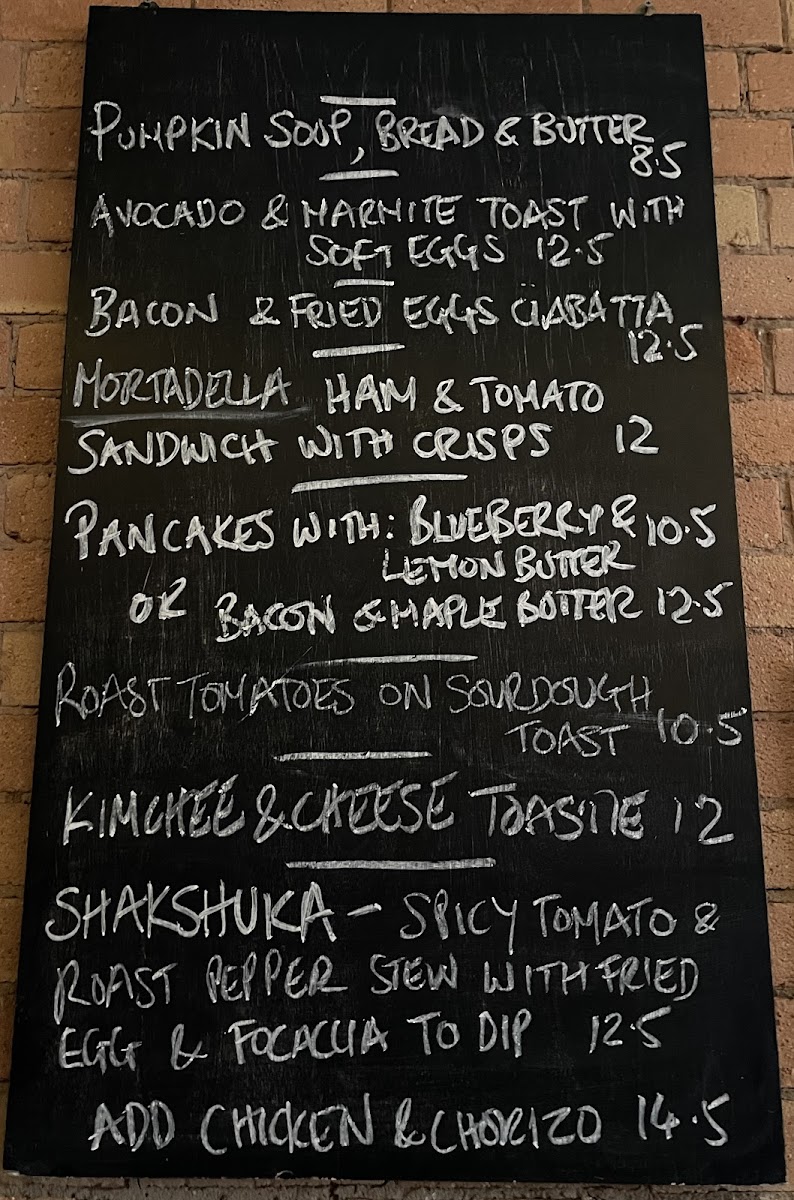 PUMPKIN SOUP, BREAD & BUTTER
8.5
AVOCADO & MARMITE TOAST WITH
SOFT EGGS 12.5
BACON & FRIED EGGS CIABATTA
12.5
MORTADELLA HAM & TOMATO
SANDWICH WITH CRISPS 12
PANCAKES WITH: BLUEBERRY & 10.5
LEMON BUTTER
OR BACON & MAPLE BUTTER 12.5
ROAST TOMATOES ON SOURDOUGH
TOAST 10.5
KIMCHEE & CHEESE TOASTIE 12
SHAKSHUKA - SPICY TOMATO &
ROAST PEPPER STEW WITH FRIED
EGG & FOCACCIA TO DIP 12.5
ADD CHICKEN & CHORIZO 14.5